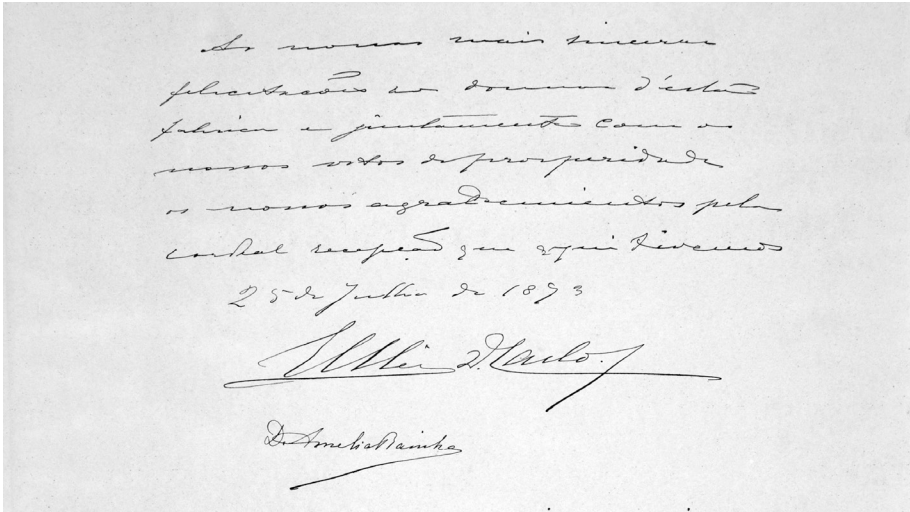 As nossas mais sinceras
felicitações ao donno d'esta
fabrica e juntamente com os
nossos votos de prosperidade
os nossos agradecimentos pela
cordeal recepção que aqui tivemos
25 de Julho de 1893
El Rei D. Carlos
D. Amelia Rainha